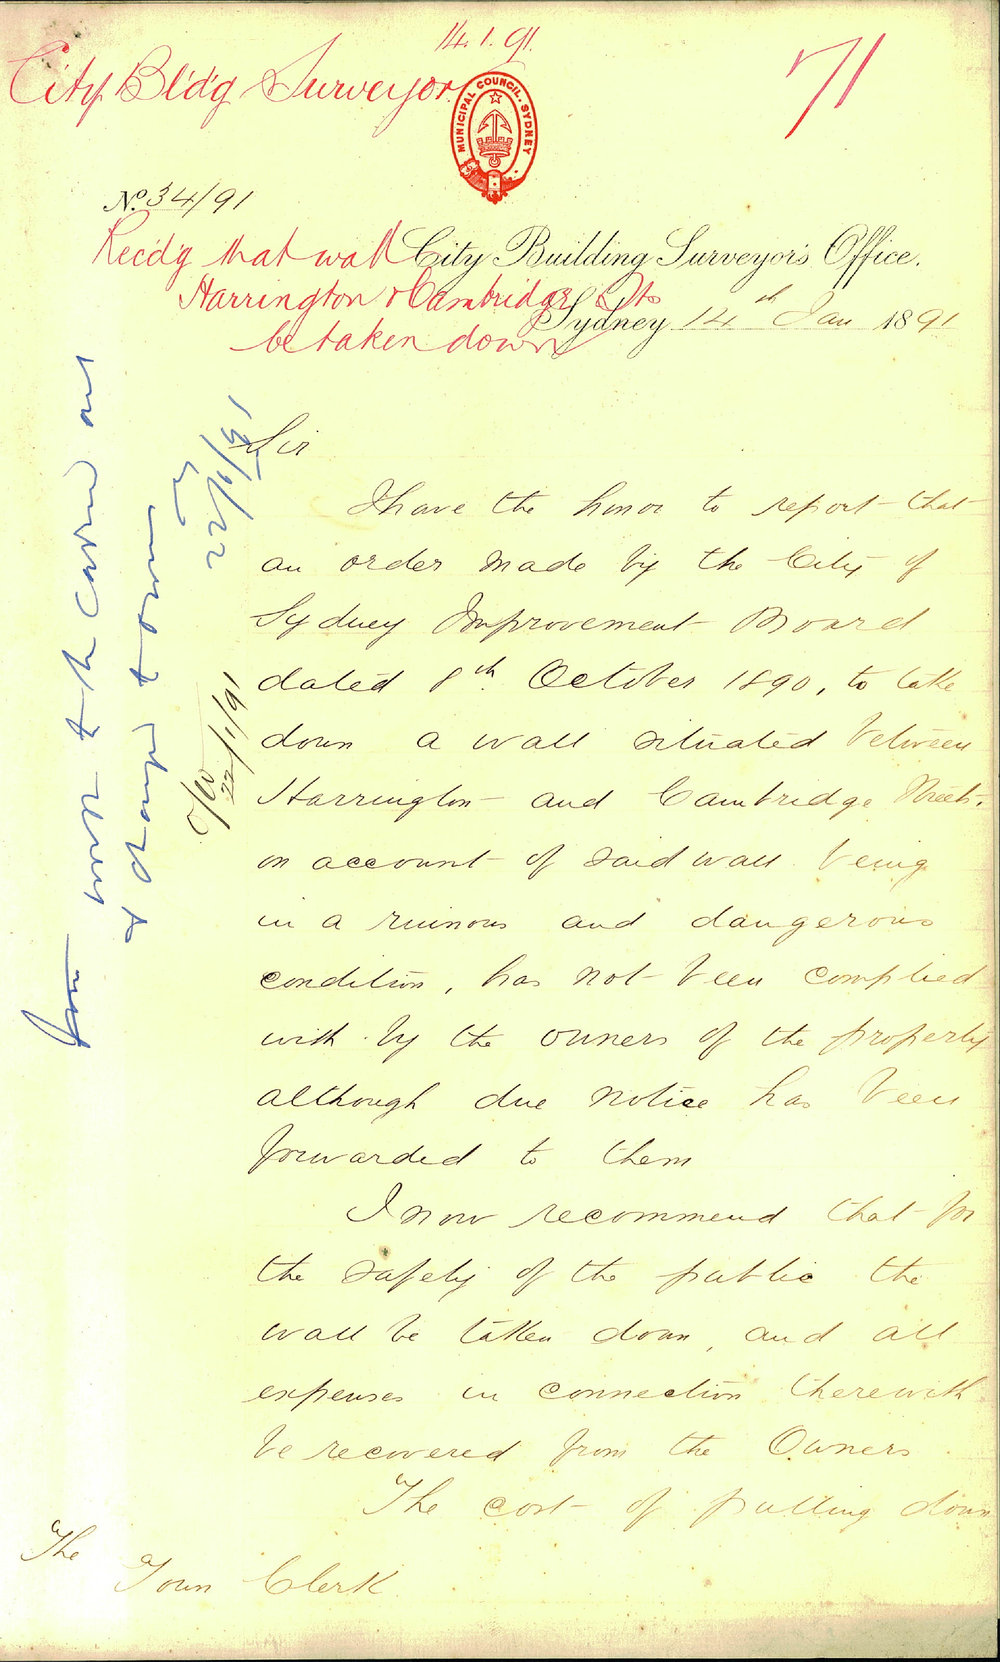 14.1.91
City Bldg Surveyor
71
MUNICIPAL COUNCIL. SYDNEY
No. 34/91
Recd'g that wall
City Building Surveyor's Office.
Harrington & Cambridge Sts
Sydney 14th Jan 1891
be taken down
Sir
I have the honor to report that
an order made by the City of
Sydney Improvement Board
dated 8th October 1890, to take
down a wall situated between
Harrington and Cambridge Streets.
on account of said wall being
in a ruinous and dangerous
condition, has not been complied
with by the owners of the property
although due notice has been
forwarded to them
I now recommend that for
the safety of the public the
wall be taken down, and all
expenses in connection therewith
be recovered from the Owners
The cost of pulling down
The
Town Clerk
work to be carried out
& charged to owners
22/1/91
22/1/91